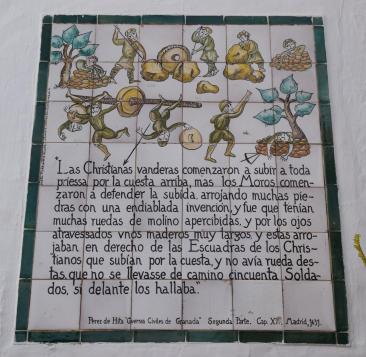 "Las Christianas vanderas comenzaron a subir a toda
priessa por la cuesta arriba, mas los Moros comen-
zaron a defender la subida, arrojando muchas pie-
dras con una endiablada invención, y fue que tenían
muchas ruedas de molino apercibidas, y por los ojos
atravessados vnos maderos muy largos y estas arro-
jaban en derecho de las Escuadras de los Chris-
tianos que subían por la cuesta, y no avía rueda des-
tas, que no se llevasse de camino cincuenta Solda-
dos, si delante los hallaba."
Perez de Hita "Guerras Civiles de Granada" Segunda Parte, Cap. Madrid,